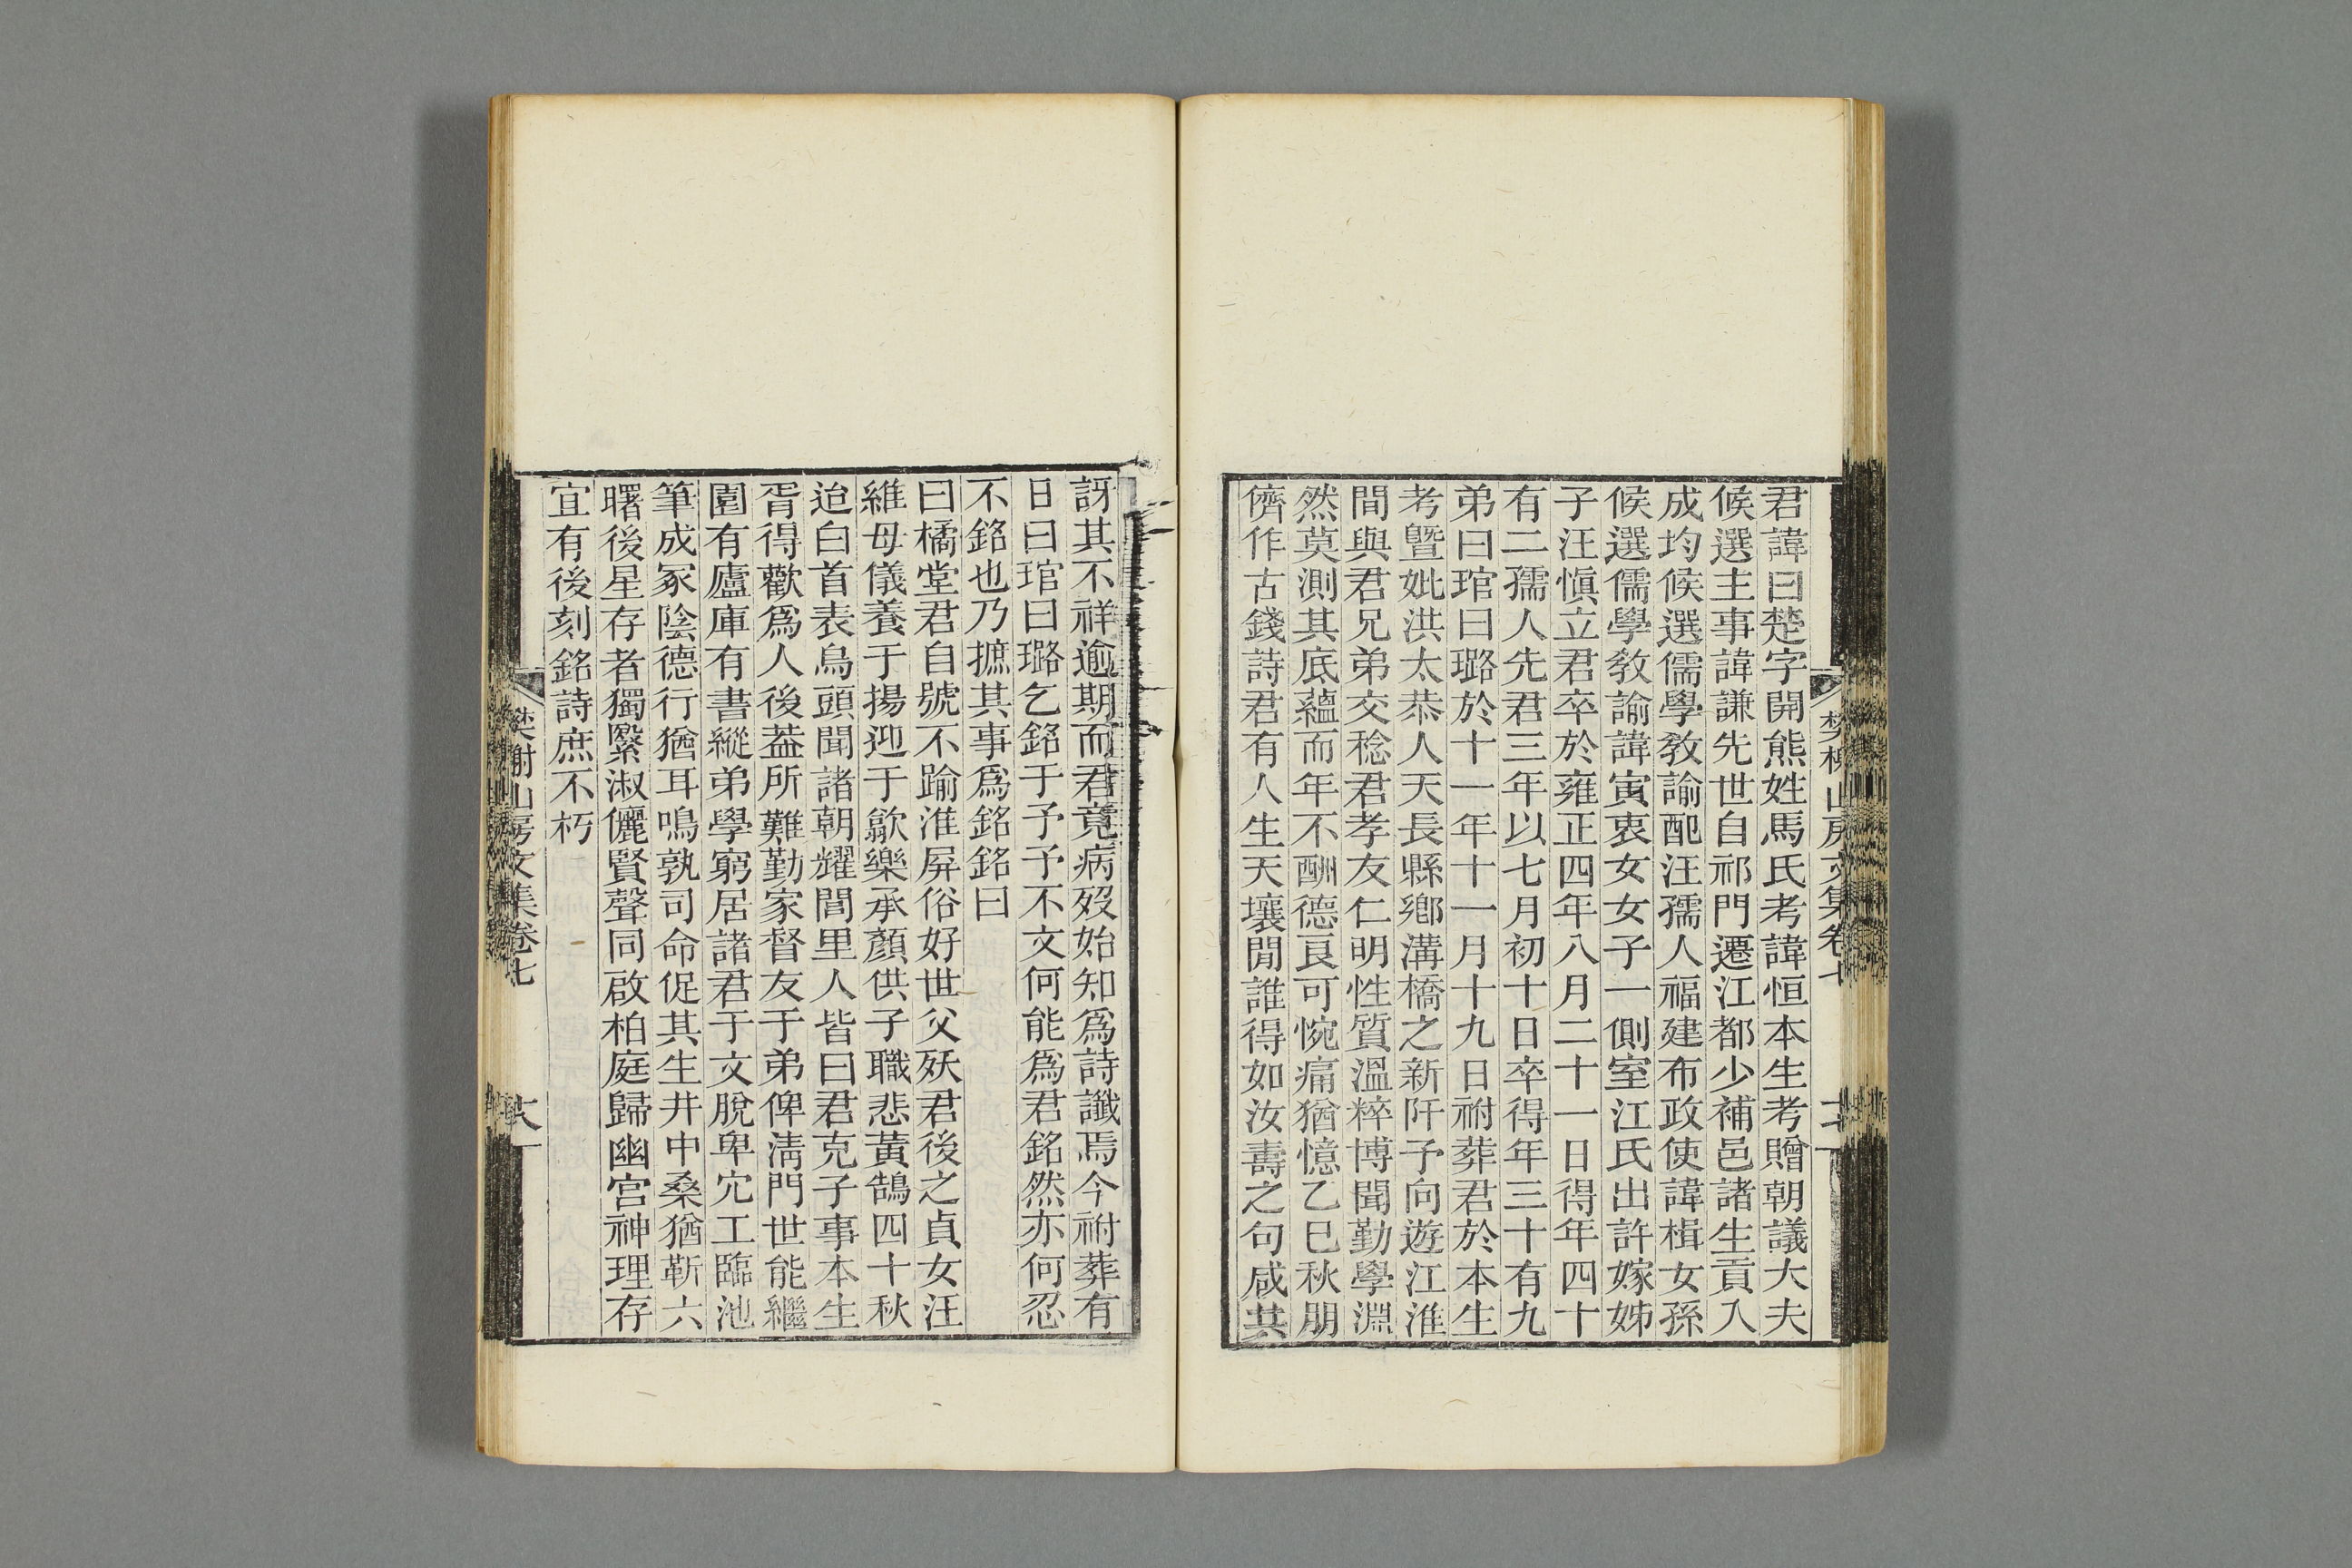 君諱曰楚字開熊姓馬氏考諱恒本生考贈朝議大夫
候選主事諱謙先世自祁門遷江都少補邑諸生貢入
成均候選儒學敎諭配汪孺人福建布政使諱楫女孫
候選儒學敎諭諱寅衷女女子一側室江氏出許嫁姊
子汪愼立君卒於雍正四年八月二十一日得年四十
有二孺人先君三年以七月初十日卒得年三十有九
弟曰琯曰璐於十一年十一月十九日祔葬君於本生
考曁妣洪太恭人天長縣鄉溝橋之新阡予向遊江淮
間與君兄弟交稔君孝友仁明性質溫粹博聞勤學淵
然莫測其底蘊而年不酬德良可惋痛猶憶乙巳秋朋
儕作古錢詩君有人生天壤閒誰得如汝壽之句咸共
訝其不祥逾期而君竟病歿始知爲詩讖焉今祔葬有
日曰琯曰璐乞銘于予予不文何能爲君銘然亦何忍
不銘也乃摭其事爲銘銘曰
曰橘堂君自號不踰淮屏俗好世父殀君後之貞女汪
維母儀養于揚迎于歙樂承顏供子職悲黃鵠四十秋
迨白首表烏頭聞諸朝耀閭里人皆曰君克子事本生
胥得歡爲人後葢所難勤家督友于弟俾淸門世能繼
圍有廬庫有書縱弟學窮居諸君于文脫卑冗工臨池
筆成冢陰德行猶耳鳴孰司命促其生井中桑猶靳六
曙後星存者獨繄淑儷賢聲同啟柏庭歸幽宮神理存
宜有後刻銘詩庶不朽
樊謝山房文集卷七